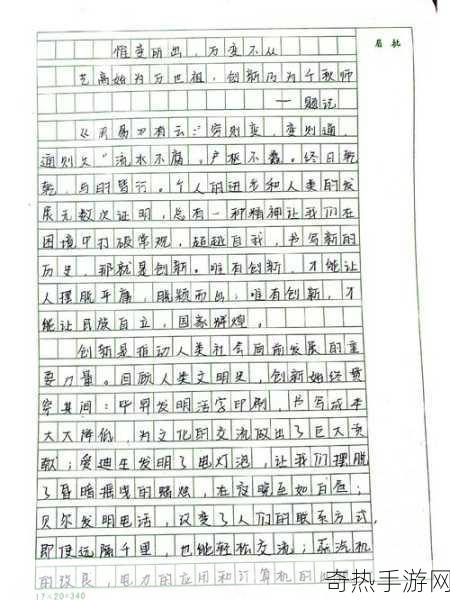 眉批
惟变所出，万变不从
艺高始为万世祖，创新乃为千教师
——题记
《周易》有云："穷则变，变则通，
通则久"流水不腐，户枢不蠹。终日乾
乾，与时皆行。个人的进步和人类的发
展无数次证明，总有一种精神让我们在
困境中打破常规，超越自我，书写新的
历史，那就是创新。唯有创新，才能让
人摆脱平庸，脱颖而出；唯有创新，才
能让民族自立，国家辉煌。
创新是推动人类社会向前发展的重
要力量。回顾人类文明史，创新始终贯
穿其间：毕昇发明活字印刷，书写成本
大大降低，为文化的交流做出了巨大贡
献；爱迪生发明了电灯泡，让我们摆脱
了昏暗摇曳的蜡烛，在夜晚亮如白昼；
贝尔发明电话，改变了人们的联系方式，
即便远隔千里，也能轻松交流；蒸汽机
的改良，电力的应用和计算机的
17×20=340
奇热手游网